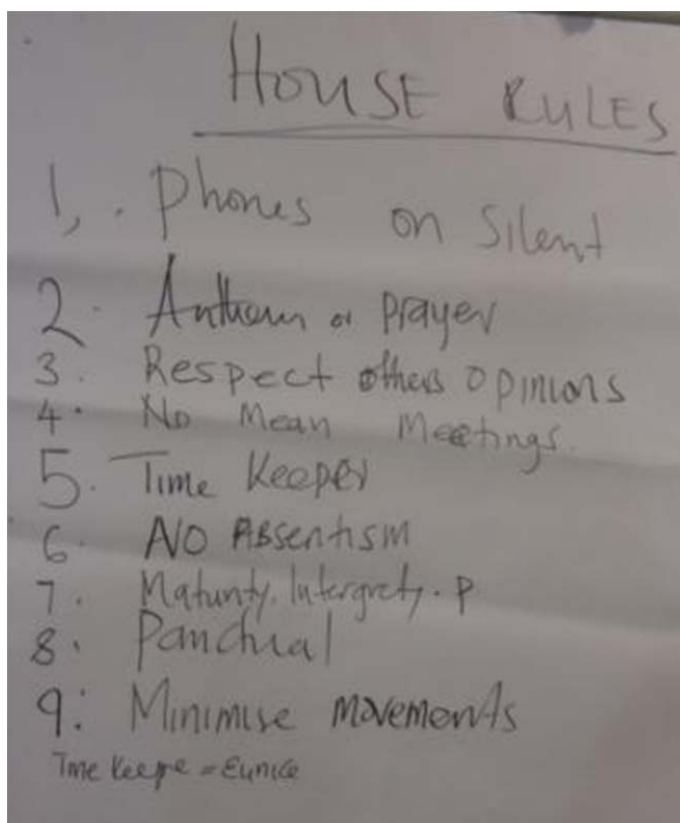 HOUSE RULES
1, . Phones on Silent
2. Anthem or Prayer
3. Respect others Opinions
4. No Mean Meetings.
5. Time Keeper
6. NO Absentism
7. Maturity. Intergrety. P
8. Panctual
9. Minimise movements
Time Keepe = Eunice